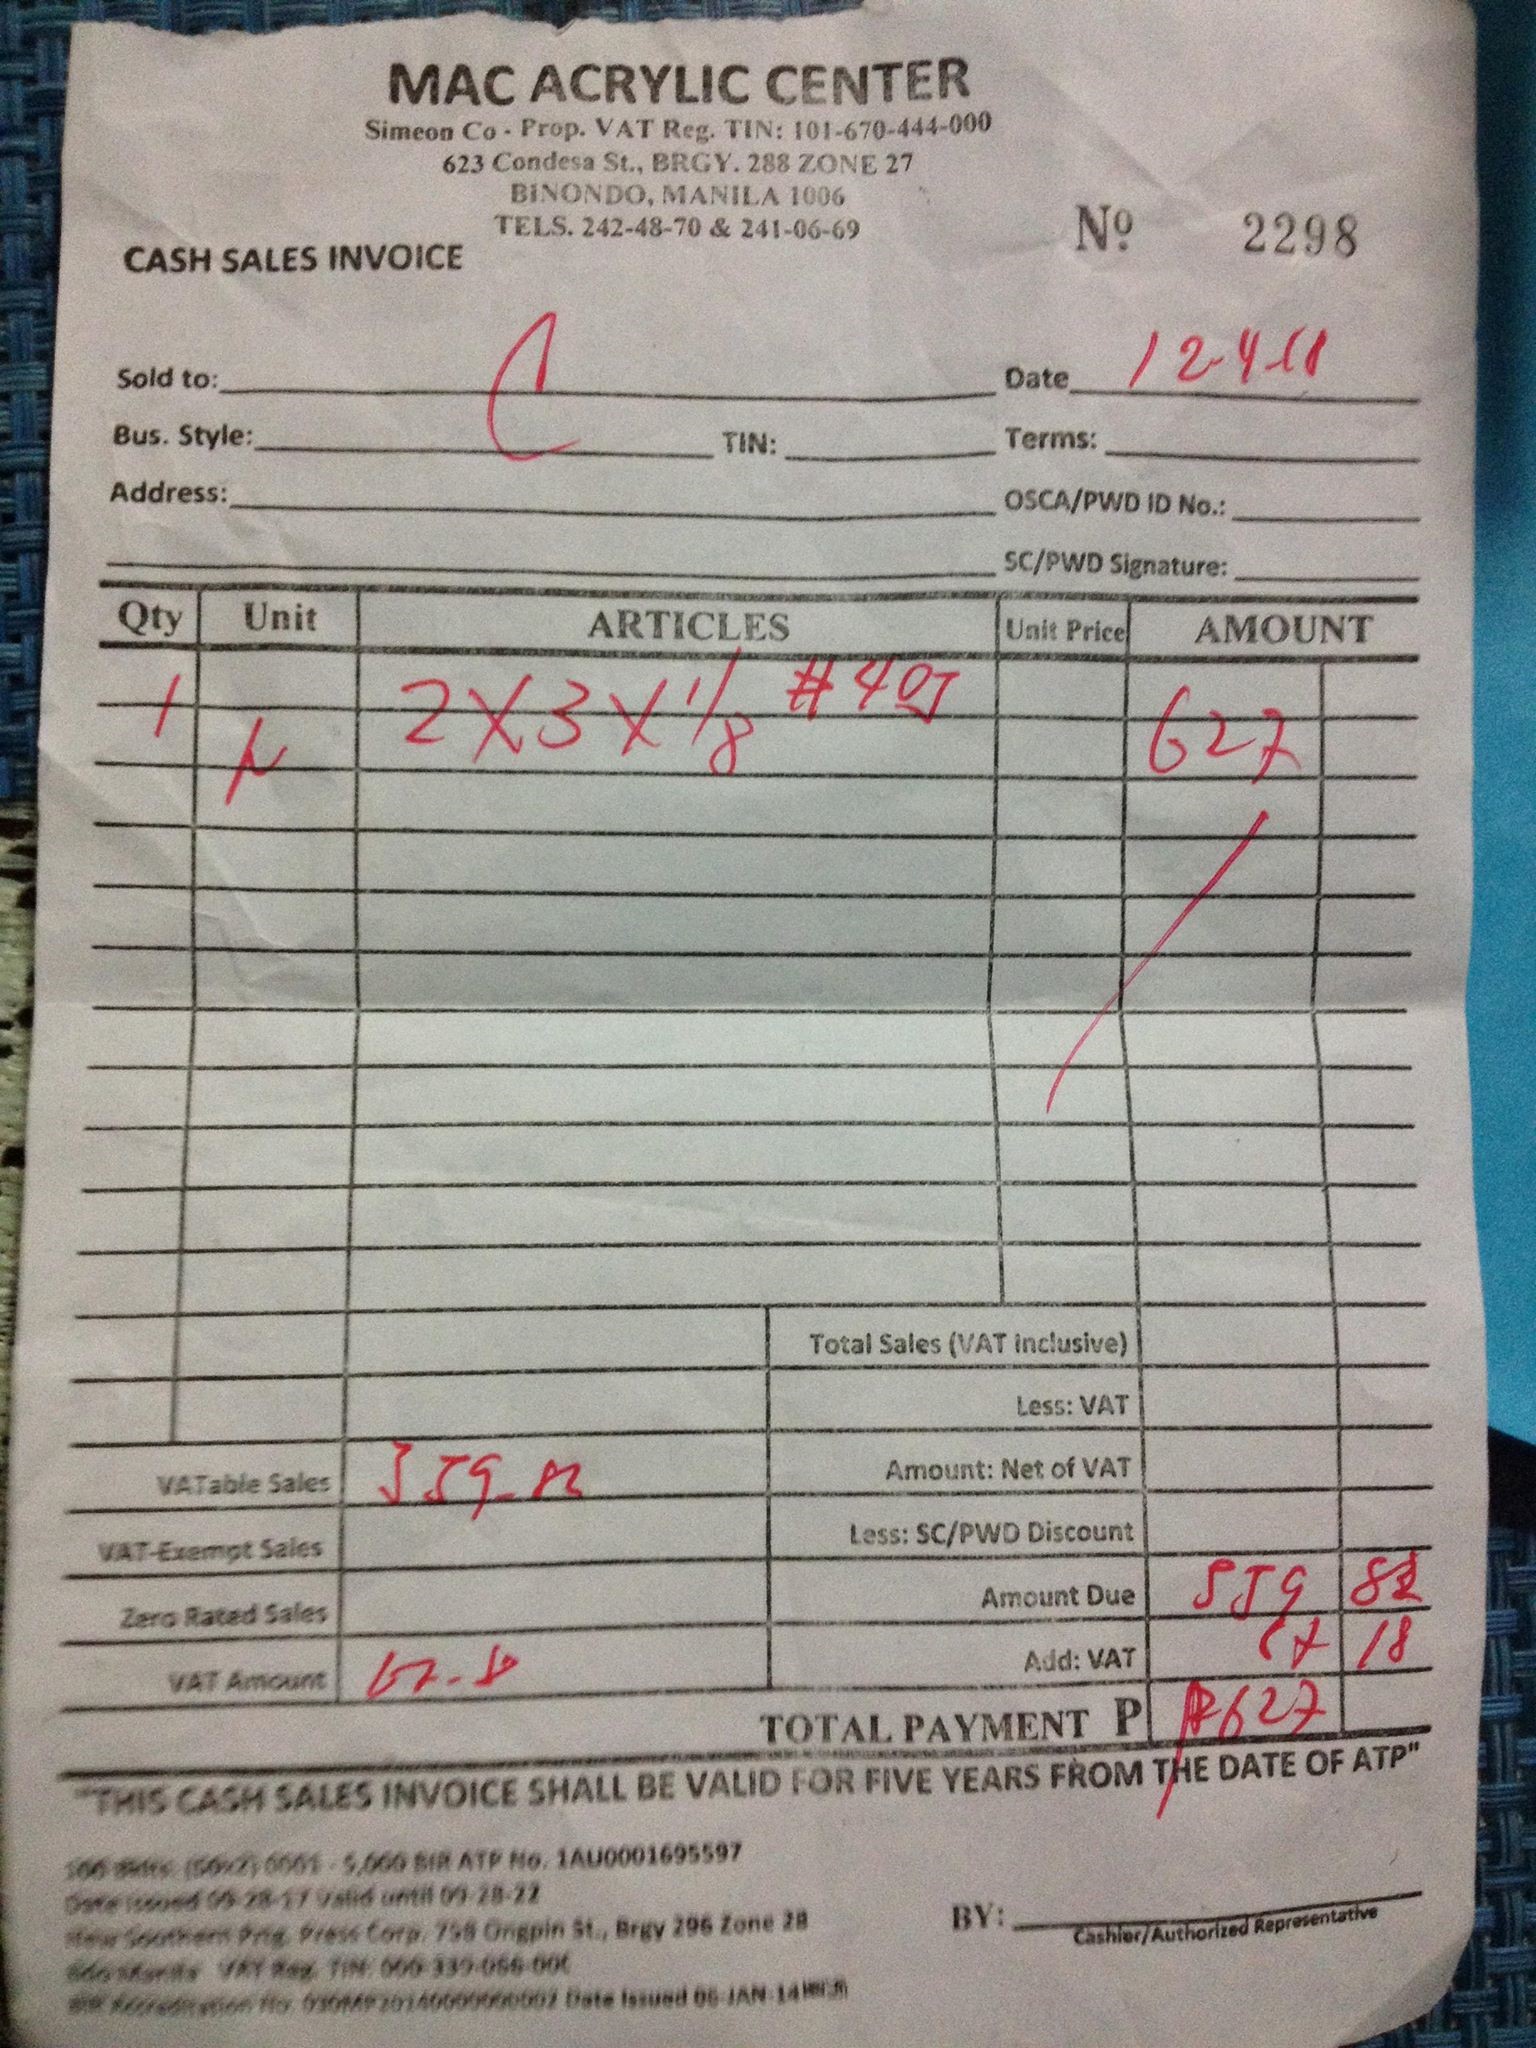 MAC ACRYLIC CENTER
Simeon Co - Prop. VAT Reg. TIN: 101-670-444-000
623 Condesa St., BRGY. 288 ZONE 27
BINONDO, MANILA 1006
TELS. 242-48-70 & 241-06-69
Nº 2298
CASH SALES INVOICE
Sold to: Date 12-4-18
Bus. Style: TIN: Terms:
Address: OSCA/PWD ID No.:
SC/PWD Signature:
Qty Unit ARTICLES Unit Price AMOUNT
1 2 X 3 X 1/8 627
Total Sales (VAT inclusive)
Less: VAT
VATable Sales Amount: Net of VAT
VAT-Exempt Sales Less: SC/PWD Discount
Zero Rated Sales Amount Due 559 82
VAT Amount Add: VAT 67 18
TOTAL PAYMENT P ₱627
"THIS CASH SALES INVOICE SHALL BE VALID FOR FIVE YEARS FROM THE DATE OF ATP"
100 Bkts. (50x2) 0001 - 5,000 BIR ATP No. 1AU0001695597
Date Issued 09-28-17 Valid until 09-28-22
New Southern Prtg. Press Corp. 758 Ongpin St., Brgy 296 Zone 28
VAT Reg. TIN: 000-339-066-000
BIR Accreditation No. Date Issued 06-JAN-14
BY:
Cashier/Authorized Representative